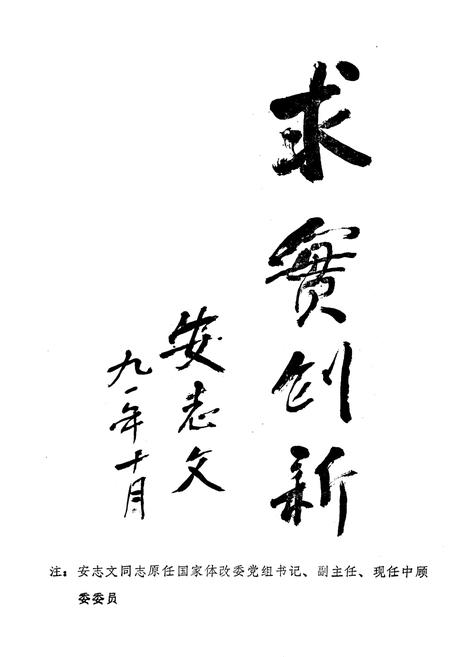 求實创新
安志文
九一年十月
注：安志文同志原任国家体改委党组书记、副主任、现任中顾
委委员